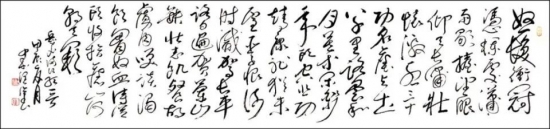 怒髮衝冠
憑欄處瀟
雨歇抬望眼
仰天長嘯壯
懷激烈三十
功名塵與土
八千里路雲
和月莫等閒
悲切
靖康恥猶未
雪臣子恨何
時滅駕長車
踏破賀蘭山
缺壯志飢餐胡
虜肉笑談渴
飲匈奴血待從
頭收拾舊山河
朝天闕